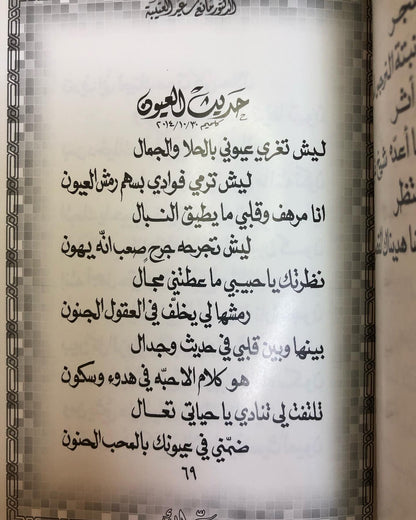 الدكتور مانع سعيد العتيبة
حديث العيون
كاسيم ٢٠١٤/١٠/٣٠
ليش تغري عيوني بالحلا والجمال
ليش ترمي فوادي بسهم رمش العيون
انا مرهف وقلبي ما يطيق النبال
ليش تجرحه جرحٍ صعب انّه يهون
نظرتك يا حبيبي ما عطتني مجال
رمشها لي يخلّف في العقول الجنون
بينها وبين قلبي في حديث وجدال
هو كلام الاحبّه في هدوء وسكون
تلتفت لي تنادي يا حياتي تعال
ضمّني في عيونك بالمحب الحنون
٦٩